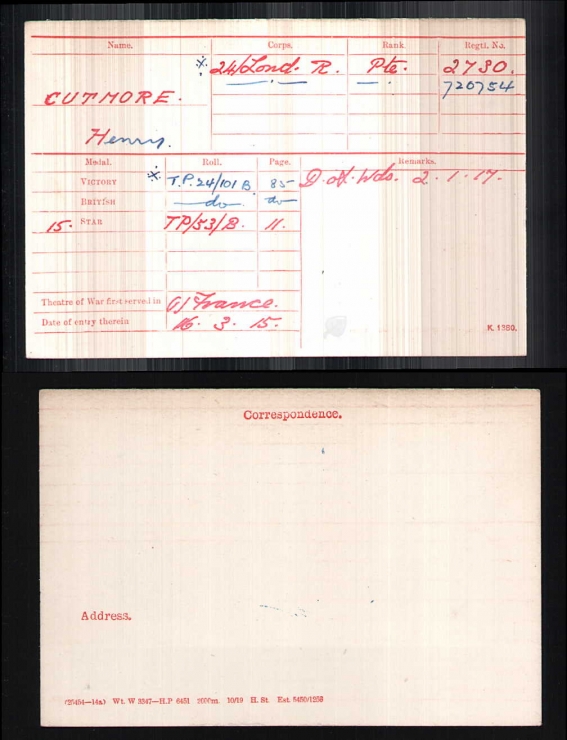 Name. Corps. Rank. Regtl. No.
CUTMORE. 24/Lond. R. Pte. 2730.
720754
Henry.
Medal. Roll. Page. Remarks.
VICTORY T.P. 24/101 B 85 D. of. Wds. 2. 1. 17.
BRITISH do do
15. STAR TP/53/B. 11.
Theatre of War first served in (1) France.
Date of entry therein 16. 3. 15.
K. 1380.
Correspondence.
Address.
(25494—14a) Wt. W 3347—H.P 6451 2000m. 10/19 H. St. Est 5450/1258